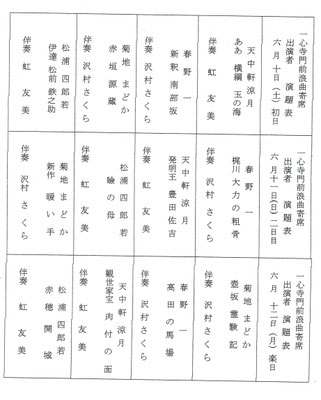 一心寺門前浪曲寄席
出演者 演題表
六月十日(土)初日
天中軒 涼月
ああ 横綱 玉の海
伴奏 虹 友美
春野 一
新釈 南部坂
伴奏 沢村さくら
菊地 まどか
赤垣源蔵
伴奏 沢村さくら
松浦 四郎若
伊達 松前 鉄之助
伴奏 虹 友美
一心寺門前浪曲寄席
出演者 演題表
六月十一日(日)二日目
春野 一
梶川大力の粗骨
伴奏 沢村さくら
天中軒 涼月
発明王 豊田佐吉
伴奏 虹 友美
松浦 四郎若
瞼の母
伴奏 虹 友美
菊地 まどか
新作 暖い手
伴奏 沢村さくら
一心寺門前浪曲寄席
出演者 演題表
六月十二日(月)楽日
菊地 まどか
壺坂 霊験記
伴奏 沢村さくら
春野 一
高田の馬場
伴奏 沢村さくら
天中軒 涼月
観世家宝 肉付の面
伴奏 虹 友美
松浦 四郎若
赤穂 開城
伴奏 虹 友美